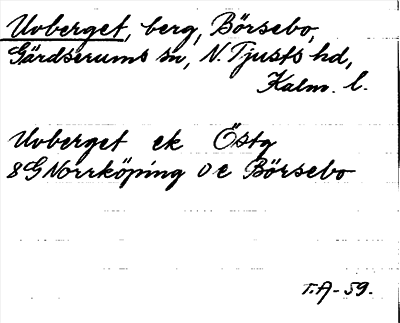 Uvberget, berg, Börsebo,
Gärdserums sn, N. Tjusts hd,
Kalm. l.
Uvberget ek Östg
8G Norrköping 0 e Börsebo
T.A-59.